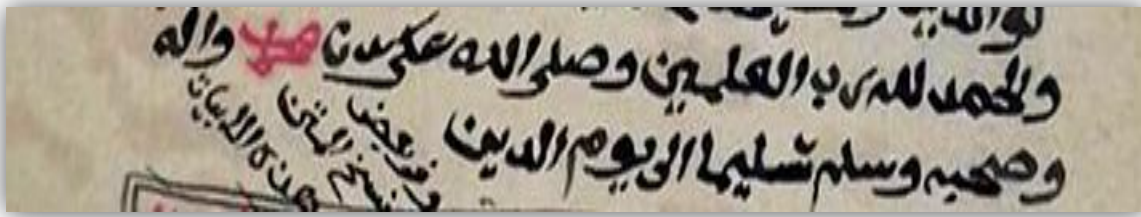 والحمد لله رب العلمين وصلى الله على سيدنا محمد واله
وصحبه وسلم تسليما الى يوم الدين
وفي بعض
نسخ المتن